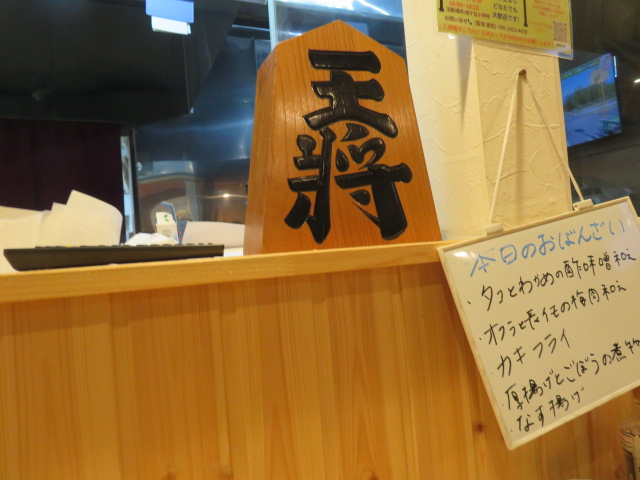 王将
本日のおばんざい
・タコとわかめの酢味噌和え
・オクラと長イモの梅肉和え
カキフライ
・厚揚げとごぼうの煮物
・なす揚げ
どなたでも
大歓迎です!